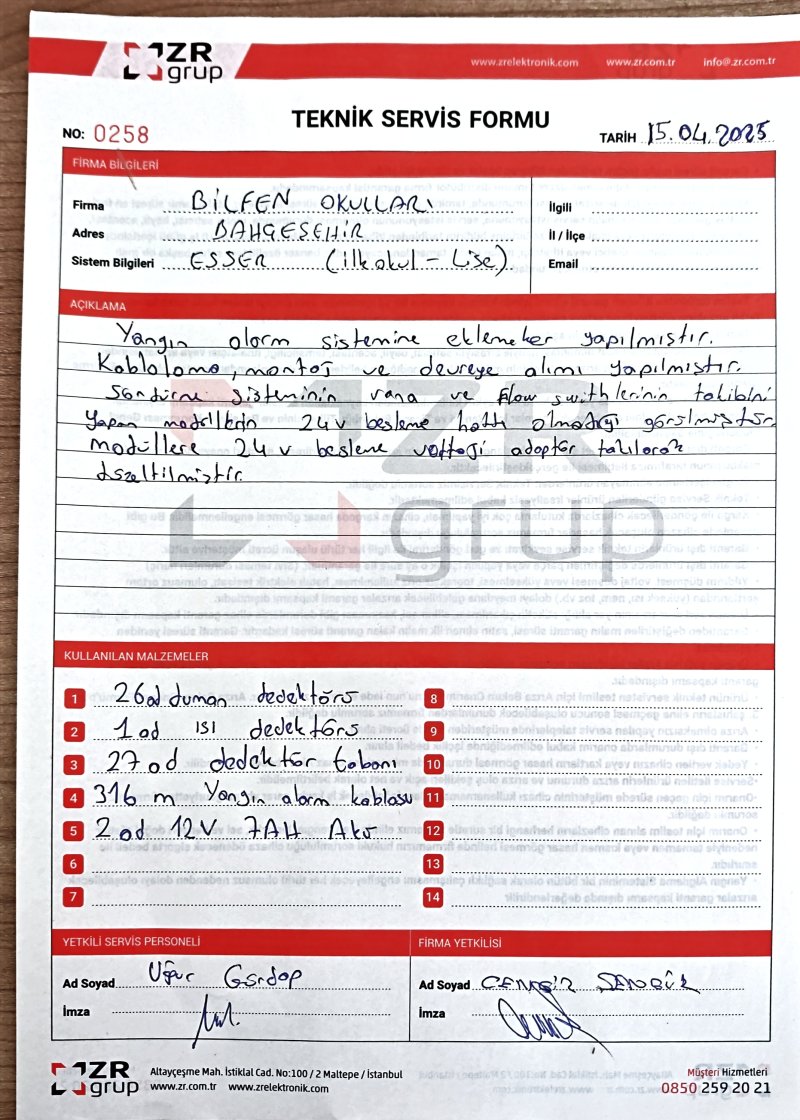 ZR grup
www.zrelektronik.com www.zr.com.tr info@.zr.com.tr
TEKNİK SERVİS FORMU
NO: 0258
TARİH 15.04.2025
FİRMA BİLGİLERİ
Firma BİLFEN OKULLARI
Adres BAHÇEŞEHİR
Sistem Bilgileri ESSER (ilkokul - Lise)
İlgili
İl / İlçe
Email
AÇIKLAMA
Yangın alarm sistemine eklemeler yapılmıştır.
Kablolama, montaj ve devreye alımı yapılmıştır.
Söndürme sisteminin vana ve flow swithlerinin takibini
yapan modüllerin 24v besleme hattı olmadığı görülmüştür.
modüllere 24v besleme voltajı adaptör takılarak
düzeltilmiştir.
ZR grup
KULLANILAN MALZEMELER
1 26 ad duman dedektörü
2 1 ad ısı dedektörü
3 27 ad dedektör tabanı
4 316 m Yangın alarm kablosu
5 2 ad 12V 7AH Akü
6
7
8
9
10
11
12
13
14
YETKİLİ SERVİS PERSONELİ
Ad Soyad Uğur
İmza
FİRMA YETKİLİSİ
Ad Soyad
İmza
ZR grup
Altayçeşme Mah. İstiklal Cad. No:100 / 2 Maltepe / İstanbul
www.zr.com.tr www.zrelektronik.com
Müşteri Hizmetleri
0850 259 20 21